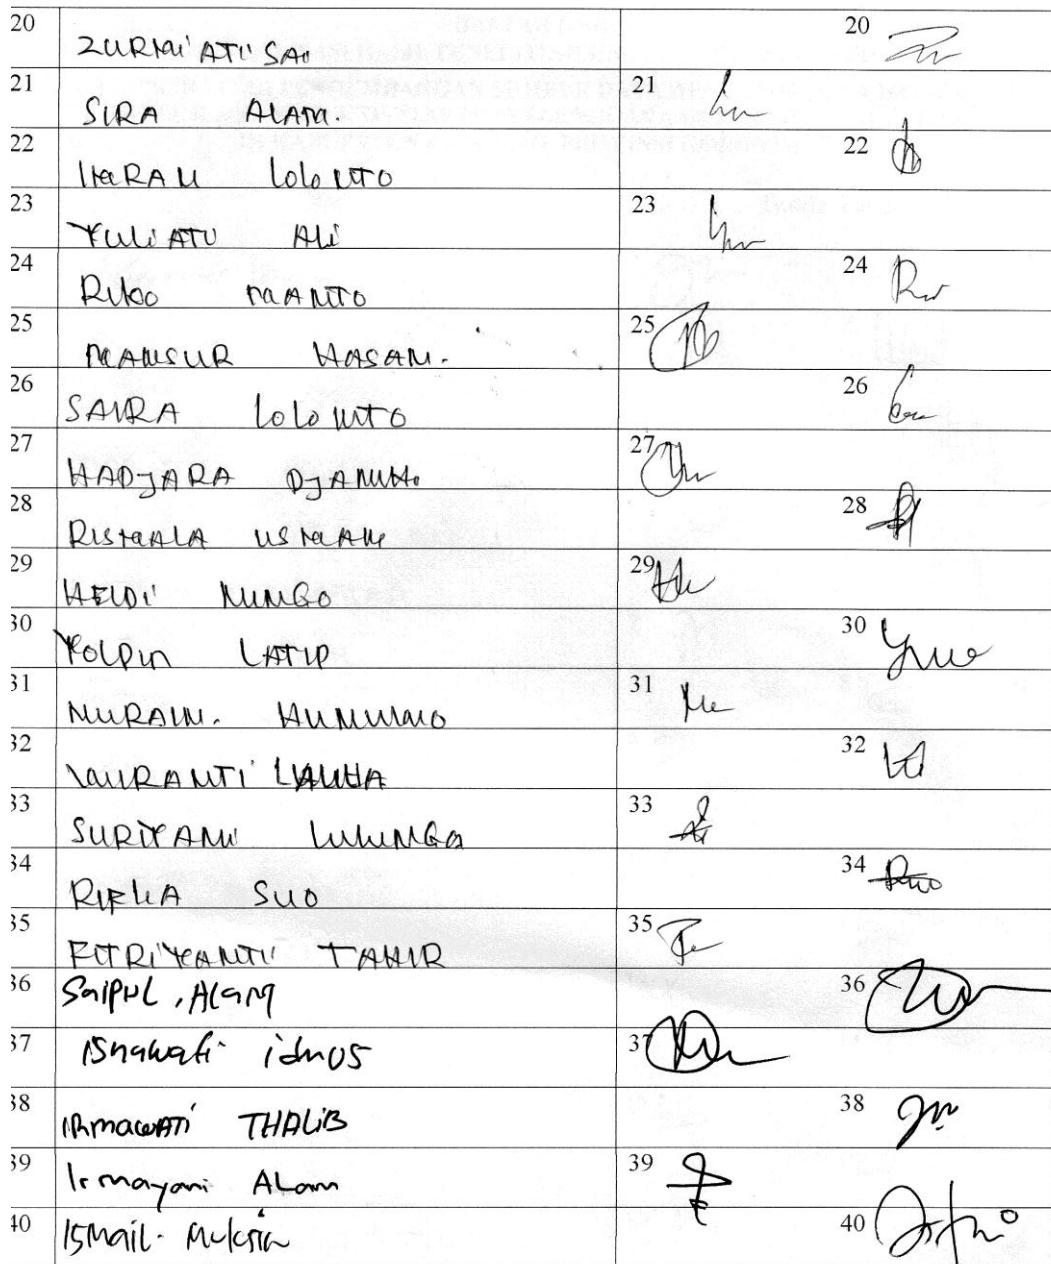 20 ZURMIATI SAI 20
21 SIRA ALAM. 21
22 IKRAM LOLONTO 22
23 YULIATI ALI 23
24 RIKO MANTO 24
25 MANSUR HASAN. 25
26 SAIRA LOLONTO 26
27 HADJARA DJANUHI 27
28 RISMALA USMAN 28
29 HELDI NUNGO 29
30 YOLPIN LATIP 30
31 NURAIN. HUNUMO 31
32 32
33 SURIYANI 33
34 RIFKA SUO 34
35 FITRIYANTI TAHIR 35
36 Saipul, Alam 36
37 Isnawati idrus 37
38 IRmawATi THALiB 38
39 Irmayani ALam 39
40 ISMail. Muksin 40